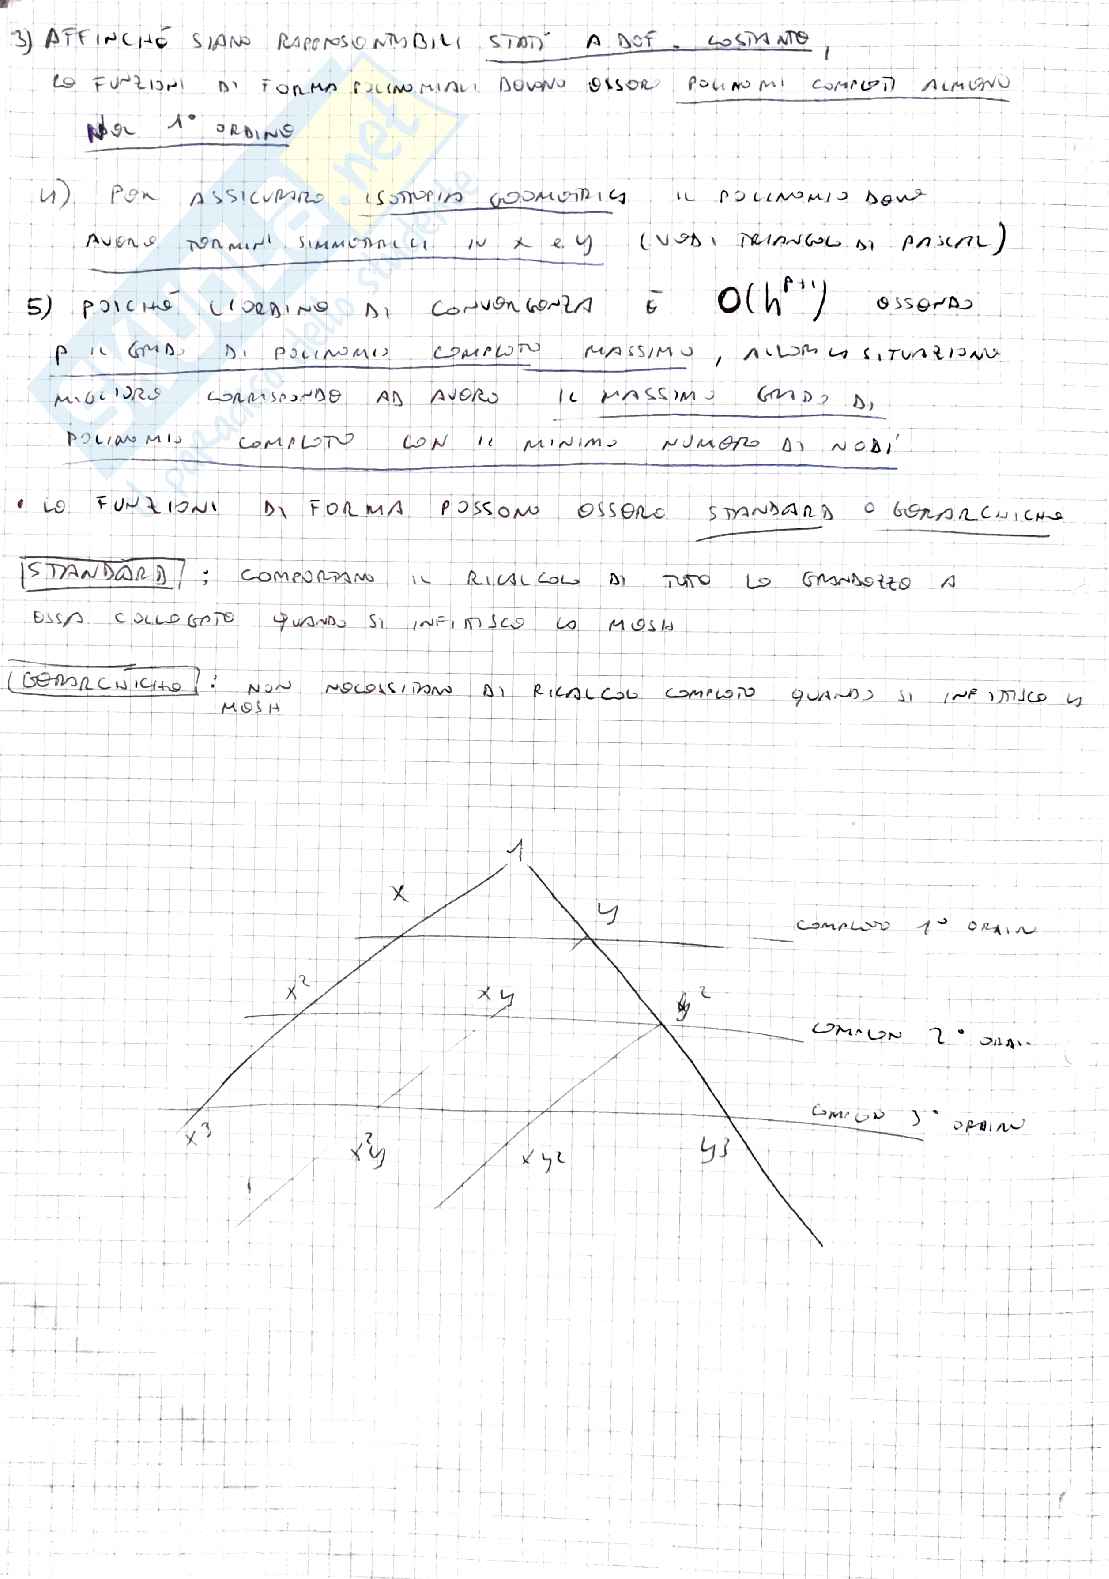 3) AFFINCHÉ SIANO RAPPRESENTABILI STATI A DEF. COSTANTE,
LE FUNZIONI DI FORMA POLINOMIALI DEVONO ESSERE POLINOMI COMPLETI ALMENO
DEL 1° ORDINE
4) PER ASSICURARE ISOTROPIA GEOMETRICA IL POLINOMIO DEVE
AVERE TERMINI SIMMETRICI IN x e y (VEDI TRIANGOLO DI PASCAL)
5) POICHÉ L'ORDINE DI CONVERGENZA È O(h^{p+1}) ESSENDO
P IL GRADO DI POLINOMIO COMPLETO MASSIMO, ALLORA LA SITUAZIONE
MIGLIORE CORRISPONDE AD AVERE IL MASSIMO GRADO DI
POLINOMIO COMPLETO CON IL MINIMO NUMERO DI NODI
• LE FUNZIONI DI FORMA POSSONO ESSERE STANDARD O GERARCHICHE
STANDARD : COMPORTANO IL RICALCOLO DI TUTTE LE GRANDEZZE A
ESSA COLLEGATE QUANDO SI INFITTISCE LA MESH
GERARCHICHE : NON NECESSITANO DI RICALCOLO COMPLETO QUANDO SI INFITTISCE LA
MESH
1
x y COMPLETO 1° ORDIN
x² xy y² 2° ORDI..
x³ x²y xy² y³ 3° ORDINE